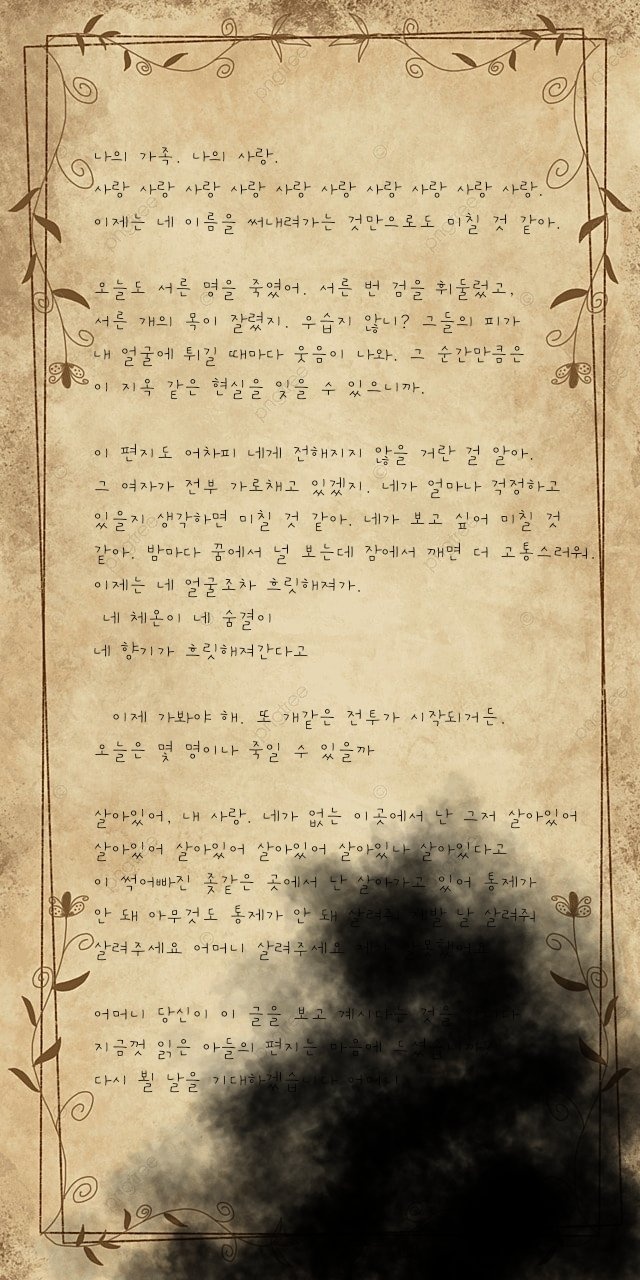 나의 가족. 나의 사랑.
사랑 사랑 사랑 사랑 사랑 사랑 사랑 사랑 사랑 사랑.
이제는 네 이름을 써내려가는 것만으로도 미칠 것 같아.
오늘도 서른 명을 죽였어. 서른 번 검을 휘둘렀고,
서른 개의 목이 잘렸지. 우습지 않니? 그들의 피가
내 얼굴에 튀길 때마다 웃음이 나와. 그 순간만큼은
이 지옥 같은 현실을 잊을 수 있으니까.
이 편지도 어차피 네게 전해지지 않을 거란 걸 알아.
그 여자가 전부 가로채고 있겠지. 네가 얼마나 걱정하고
있을지 생각하면 미칠 것 같아. 네가 보고 싶어 미칠 것
같아. 밤마다 꿈에서 널 보는데 잠에서 깨면 더 고통스러워.
이제는 네 얼굴조차 흐릿해져가.
네 체온이 네 숨결이
네 향기가 흐릿해져간다고
이제 가봐야 해. 또 개같은 전투가 시작되거든.
오늘은 몇 명이나 죽일 수 있을까
살아있어, 내 사랑. 네가 없는 이곳에서 난 그저 살아있어
살아있어 살아있어 살아있어 살아있나 살아있다고
이 썩어빠진 좆같은 곳에서 난 살아가고 있어 통제가
안 돼 아무것도 통제가 안 돼 살려줘 제발 날 살려줘
살려주세요 어머니 살려주세요 제가 잘못했어요
어머니 당신이 이 글을 보고 계시다는 것을
지금껏 읽은 아들의 편지는 마음에
다시 뵐 날을 기대하겠습니다 어머니